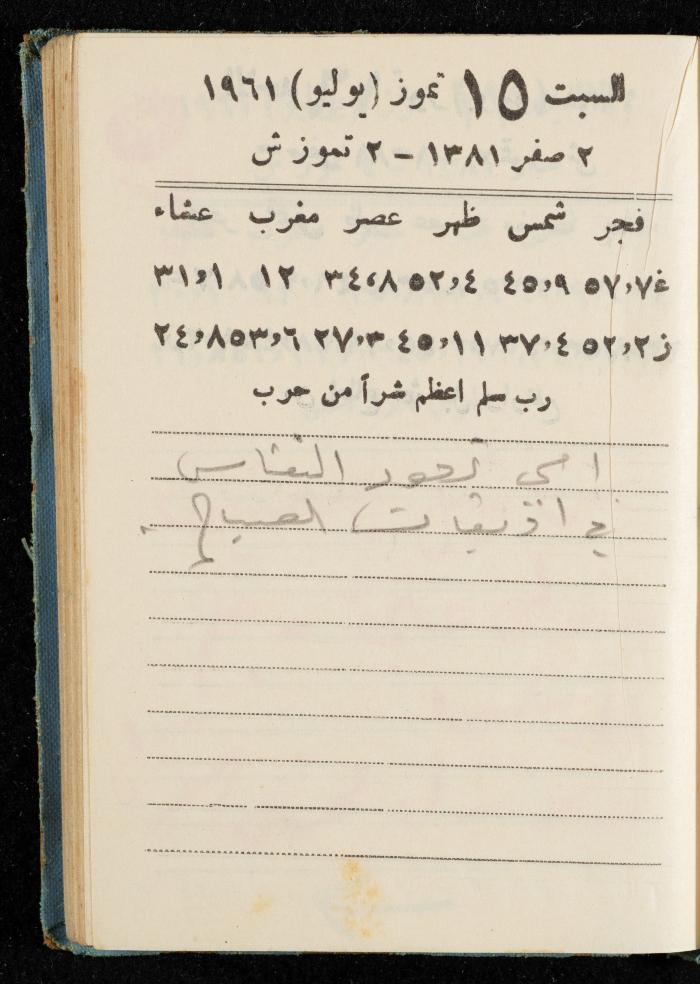 السبت ١٥ تموز (يوليو) ١٩٦١
٢ صفر ١٣٨١ – ٢ تموز ش
فجر شمس ظهر عصر مغرب عشاء
غ٥٧,٧ ٤٥,٩ ٥٢,٤ ٣٤,٨ ١٢ ٣١,١
ز٥٢,٢ ٣٧,٤ ٤٥,١١ ٢٧,٣ ٥٣,٦ ٢٤,٨
رب سلم اعظم شراً من حرب
امي تعود
في الصباح